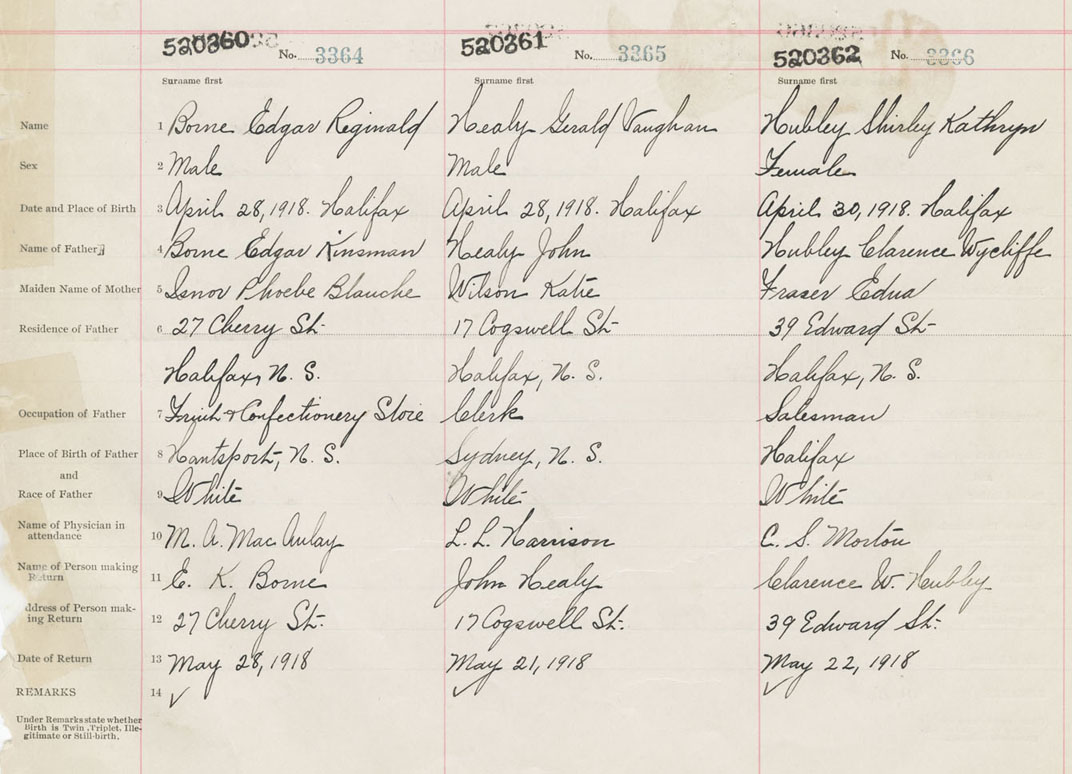 520360 No. 3364 520361 No. 3365 520362 No. 3366
Surname first Surname first Surname first
Name 1 Borne Edgar Reginald Healy Gerald Vaughan Hubley Shirley Kathryn
Sex 2 Male Male Female
Date and Place of Birth 3 April 28, 1918. Halifax April 28, 1918. Halifax April 30, 1918. Halifax
Name of Father 4 Borne Edgar Kinsman Healy John Hubley Clarence Wycliffe
Maiden Name of Mother 5 Isnor Phoebe Blanche Wilson Katie Fraser Edna
Residence of Father 6 27 Cherry St- 17 Cogswell St- 39 Edward St-
Halifax, N. S. Halifax, N. S. Halifax, N. S.
Occupation of Father 7 Fruit & Confectionery Store Clerk Salesman
Place of Birth of Father 8 Hantsport, N. S. Sydney, N. S. Halifax
and
Race of Father 9 White White White
Name of Physician in
attendance 10 M. A. Mac Aulay L. L. Harrison C. S. Morton
Name of Person making
Return 11 E. K. Borne John Healy Clarence W. Hubley
ddress of Person mak-
ing Return 12 27 Cherry St. 17 Cogswell St. 39 Edward St.
Date of Return 13 May 28, 1918 May 21, 1918 May 22, 1918
REMARKS 14 ✓ ✓ ✓
Under Remarks state whether
Birth is Twin, Triplet, Ille-
gitimate or Still-birth.